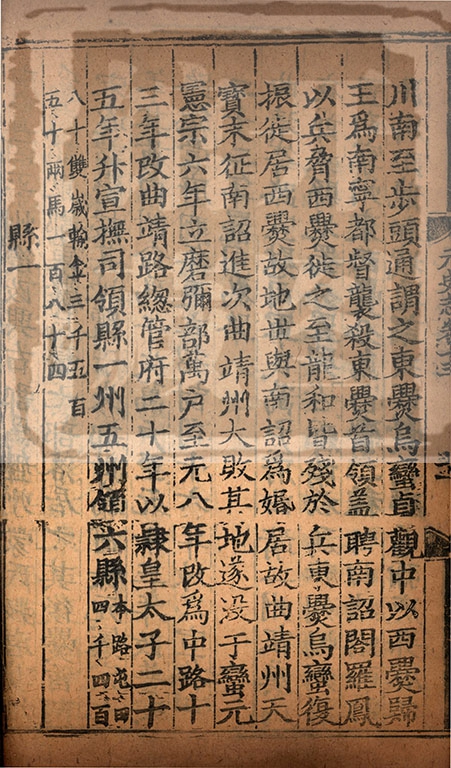 元史志卷十三
川南至步頭通謂之東爨烏蠻貞觀中以西爨歸
王爲南寧都督襲殺東爨首領蓋聘南詔閤羅鳳
以兵脅西爨徙之至龍和皆殘於兵東爨烏蠻復
振徙居西爨故地世與南詔爲婚居故曲靖州天
寶末征南詔進次曲靖州大敗其地遂没于蠻元
憲宗六年立磨彌部萬戶至元八年改爲中路十
三年改曲靖路總管府二十年以隸皇太子二十
五年升宣撫司領縣一州五州領六縣
本路屯田
四千四百
八十雙歲輸金三千五百
五十兩馬一百八十四
縣一